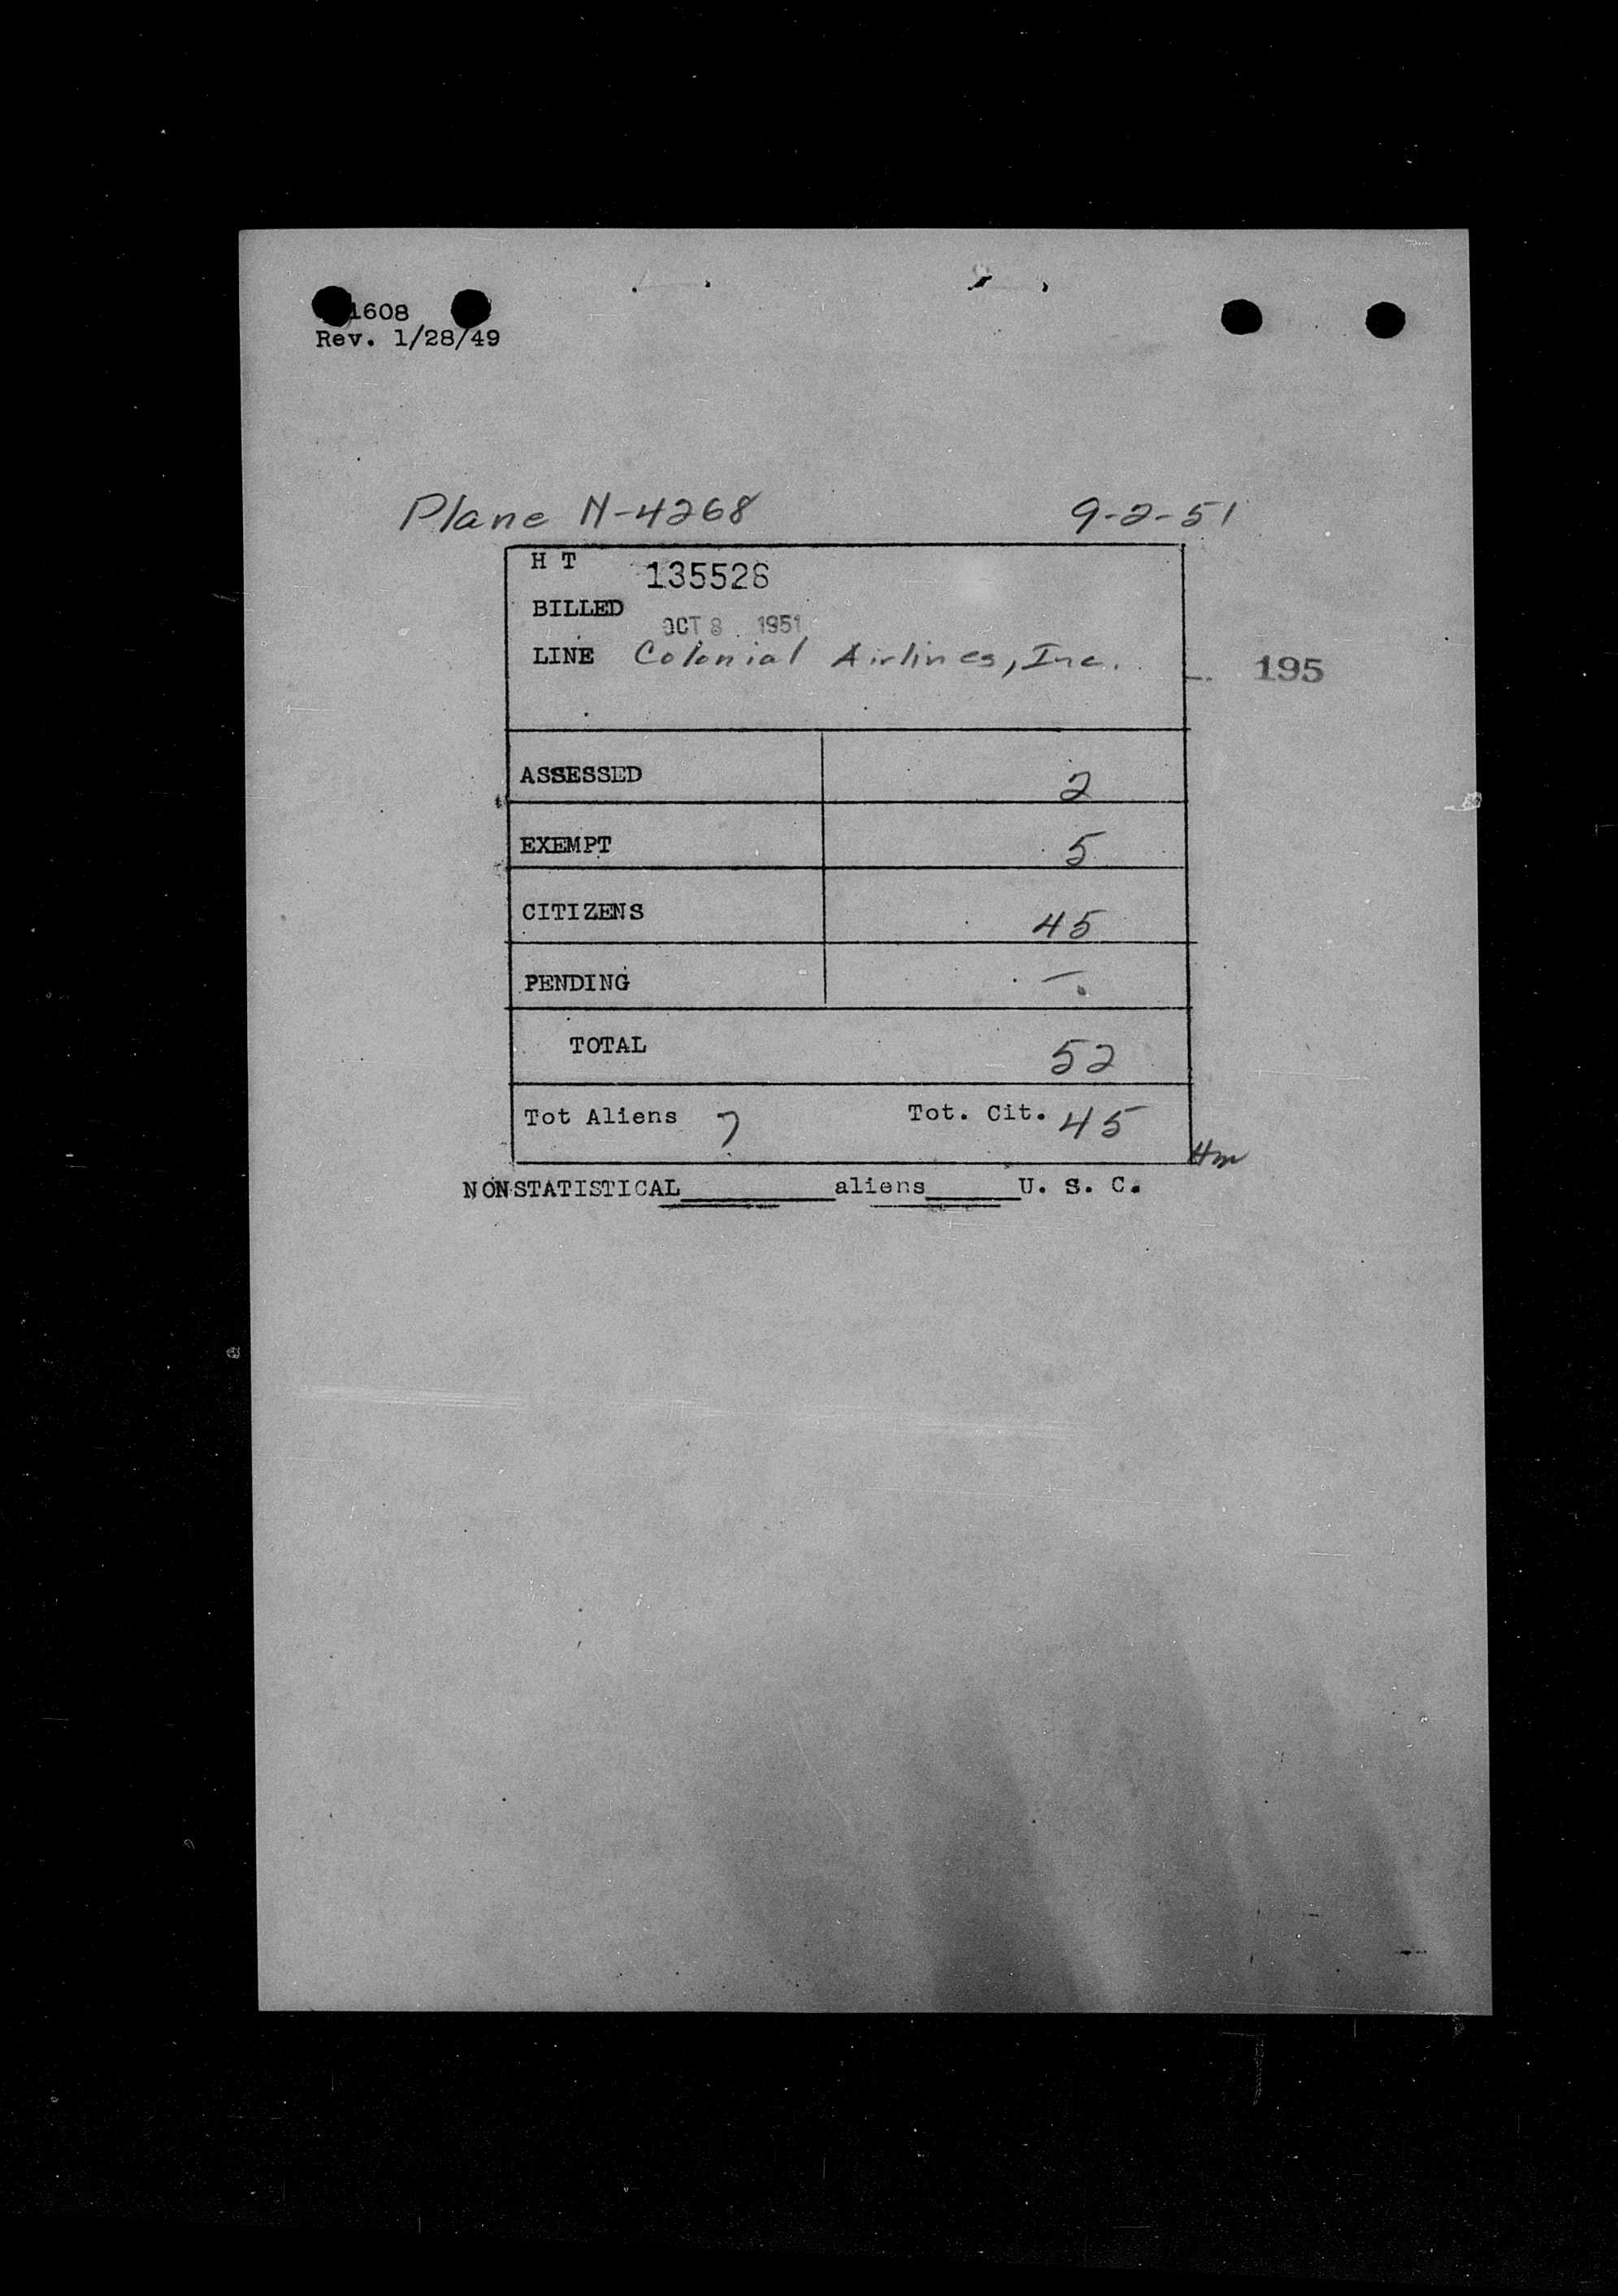 1608
Rev. 1/28/49
Plane N-4268 9-2-51
H T 135528
BILLED OCT 8 1951
LINE Colonial Airlines, Inc.
195
ASSESSED 2
EXEMPT 5
CITIZENS 45
PENDING –
TOTAL 52
Tot Aliens 7 Tot. Cit. 45
NONSTATISTICAL__________aliens______U. S. C.